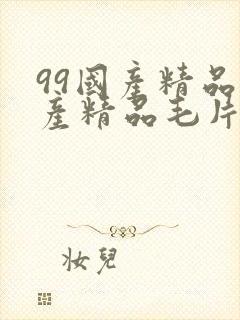 99國産精品
産精品毛片
妆兒